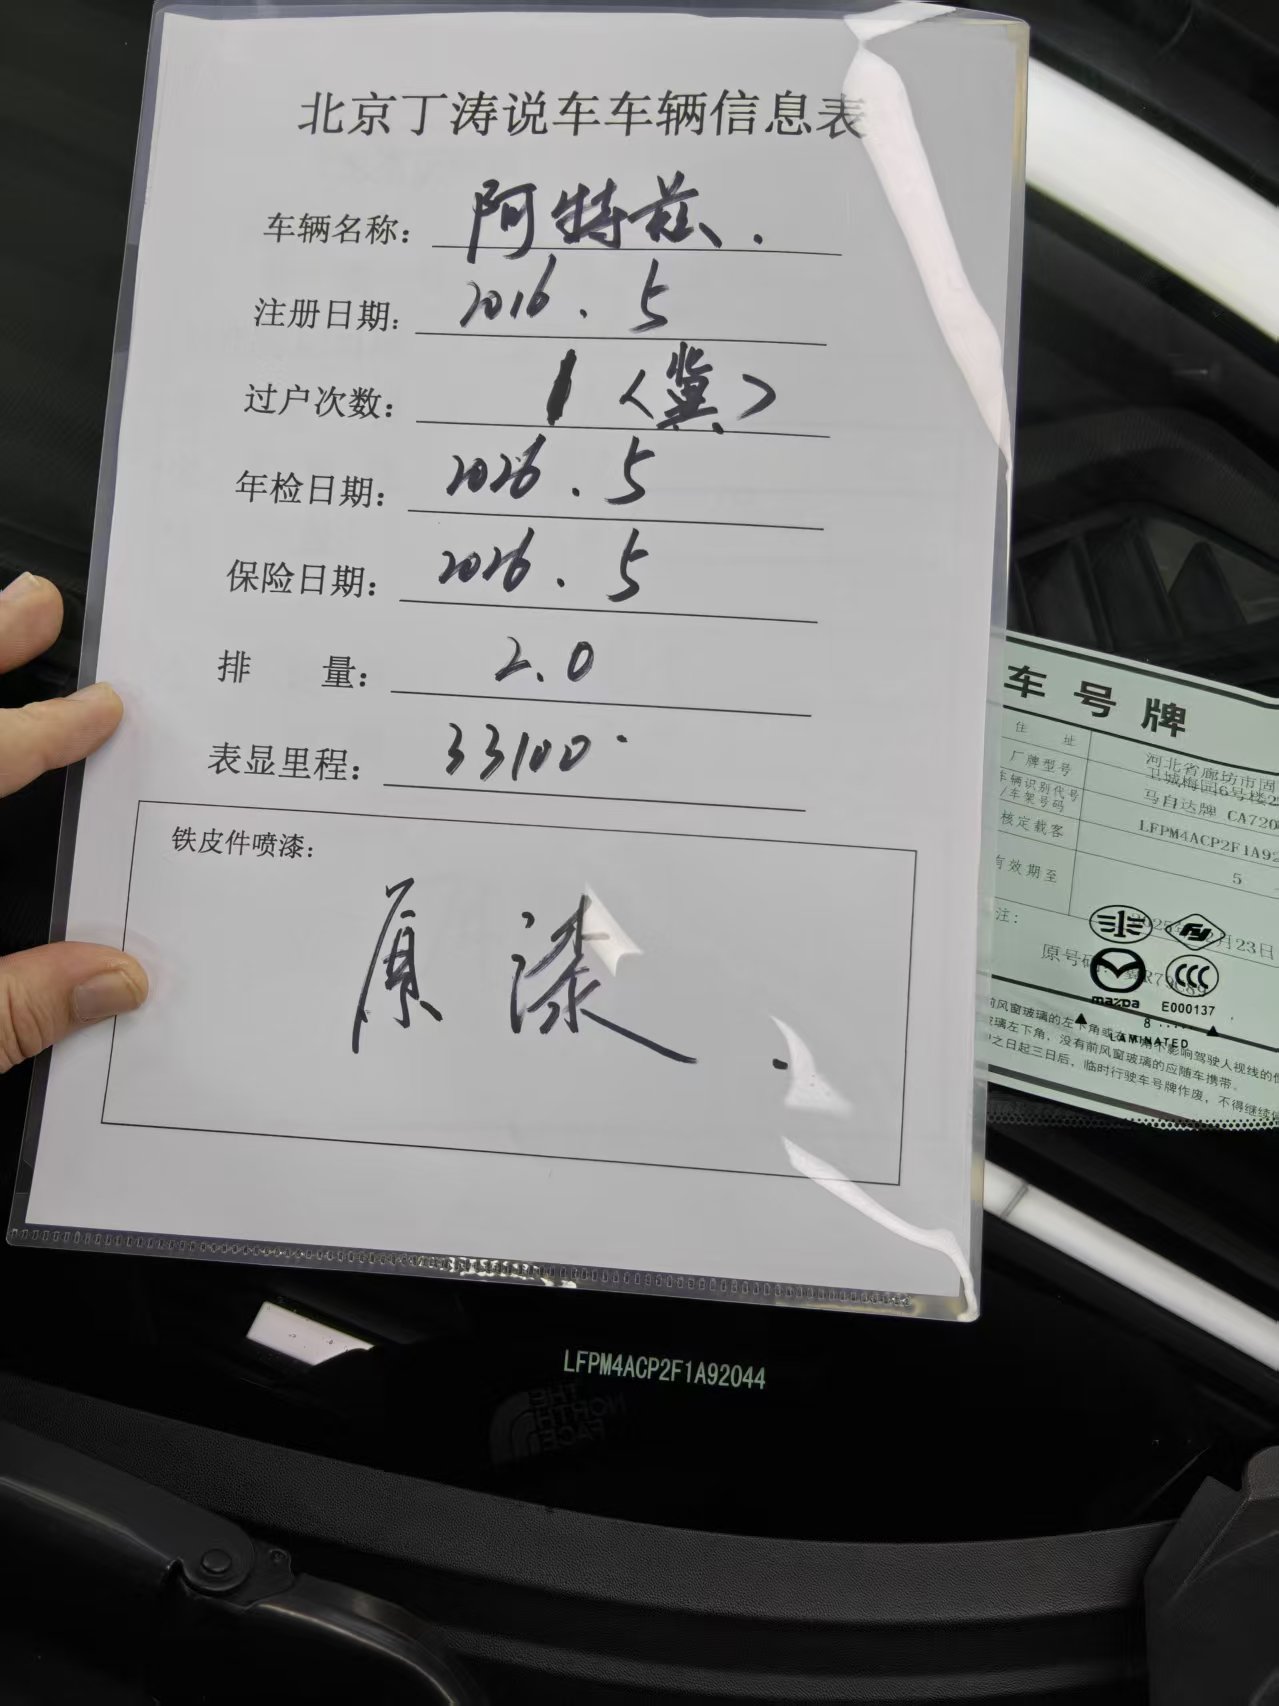 北京丁涛说车车辆信息表
车辆名称：阿特兹.
注册日期：2016.5
过户次数：1（冀）
年检日期：2026.5
保险日期：2026.5
排 量：2.0
表显里程：33100
铁皮件喷漆：
原漆.
车号牌
住 址
河北省廊坊市固
卫城梅园6号楼2
厂牌型号
马自达牌 CA720
车辆识别代号
/车架号码
LFPM4ACP2F1A92
核定载客
5
有效期至
月23日
注：
原号码：冀R79C89
mazda
E000137
8
LAMINATED
前风窗玻璃的左下角或右
角不影响驾驶人视线的位
玻璃左下角，没有前风窗玻璃的应随车携带。
之日起三日后，临时行驶车号牌作废，不得继续使
LFPM4ACP2F1A92044
THE
NORTH
FACE